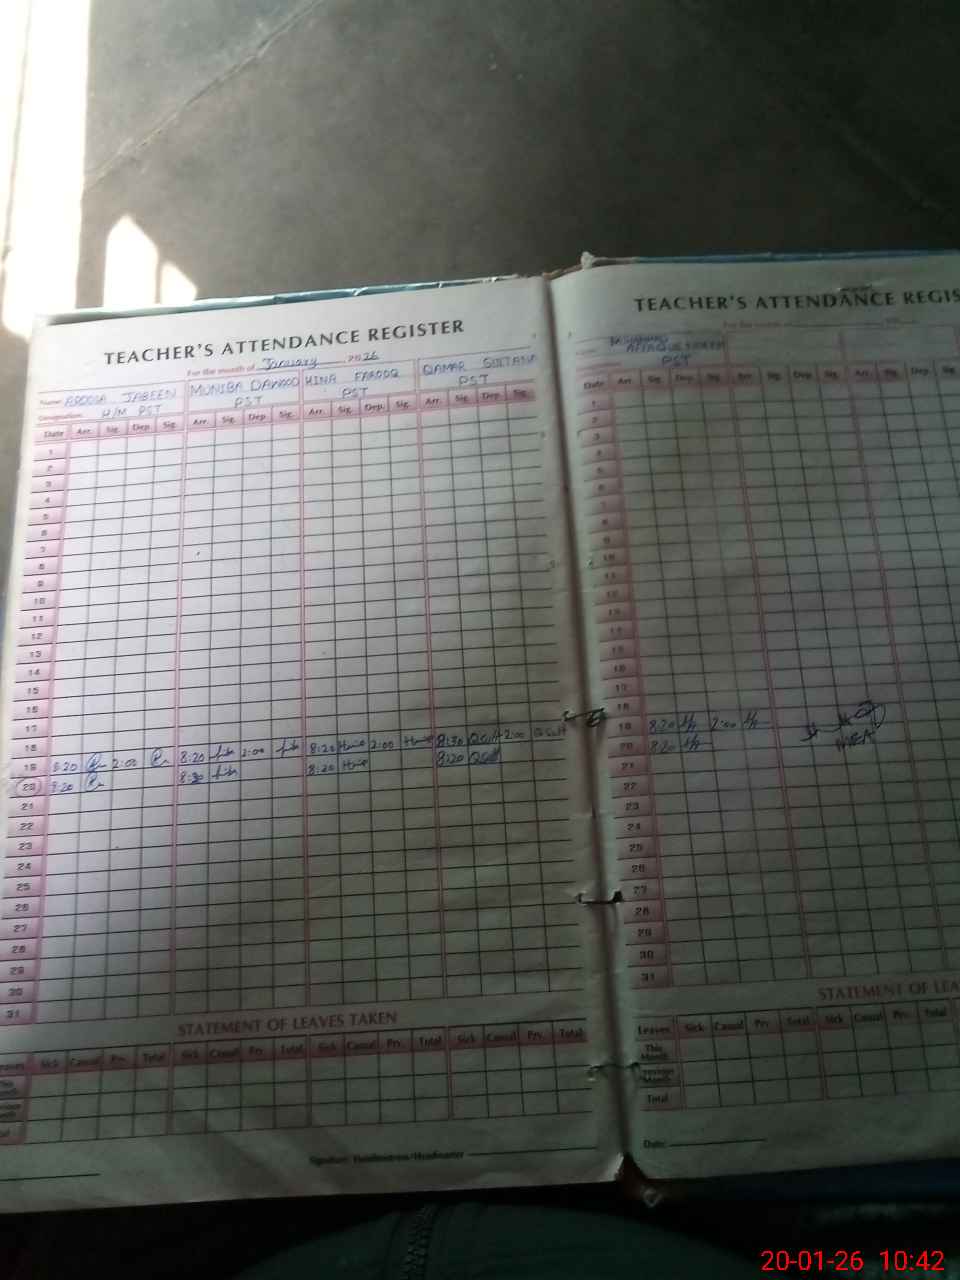 TEACHER'S ATTENDANCE REGISTER
For the month of January 2026
Name AROOBA JABEEN MUNIBA DAWOOD HINA FAROOQ QAMAR SULTANA
Designation H/M PST PST PST PST
Date Arr. Sig. Dep. Sig. Arr. Sig. Dep. Sig. Arr. Sig. Dep. Sig. Arr. Sig. Dep. Sig.
1
2
3
4
5
6
7
8
9
10
11
12
13
14
15
16
17
18
19 8:20 2:00 8:20 2:00 8:20 Hina 2:00 Hina 8:30 2:00
20 8:20 8:30 8:20 Hina 8:20
21
22
23
24
25
26
27
28
29
30
31
STATEMENT OF LEAVES TAKEN
Leaves Sick Casual Prv. Total Sick Casual Prv. Total Sick Casual Prv. Total Sick Casual Prv. Total
This Month
Previous Month
Total
Signature Headmistress/Headmaster
TEACHER'S ATTENDANCE REGIS
For the month
MUHAMMAD
PST
Date Arr. Sig. Dep. Sig. Arr. Sig. Dep. Sig. Arr. Sig. Dep. Sig.
1
2
3
4
5
6
7
8
9
10
11
12
13
14
15
16
17
18
19 8:20 2:00
20 8:20
21
22
23
24
25
26
27
28
29
30
31
STATEMENT OF LEA
Leaves Sick Casual Prv. Total Sick Casual Prv. Total
This Month
Previous Month
Total
Date:
20-01-26 10:42